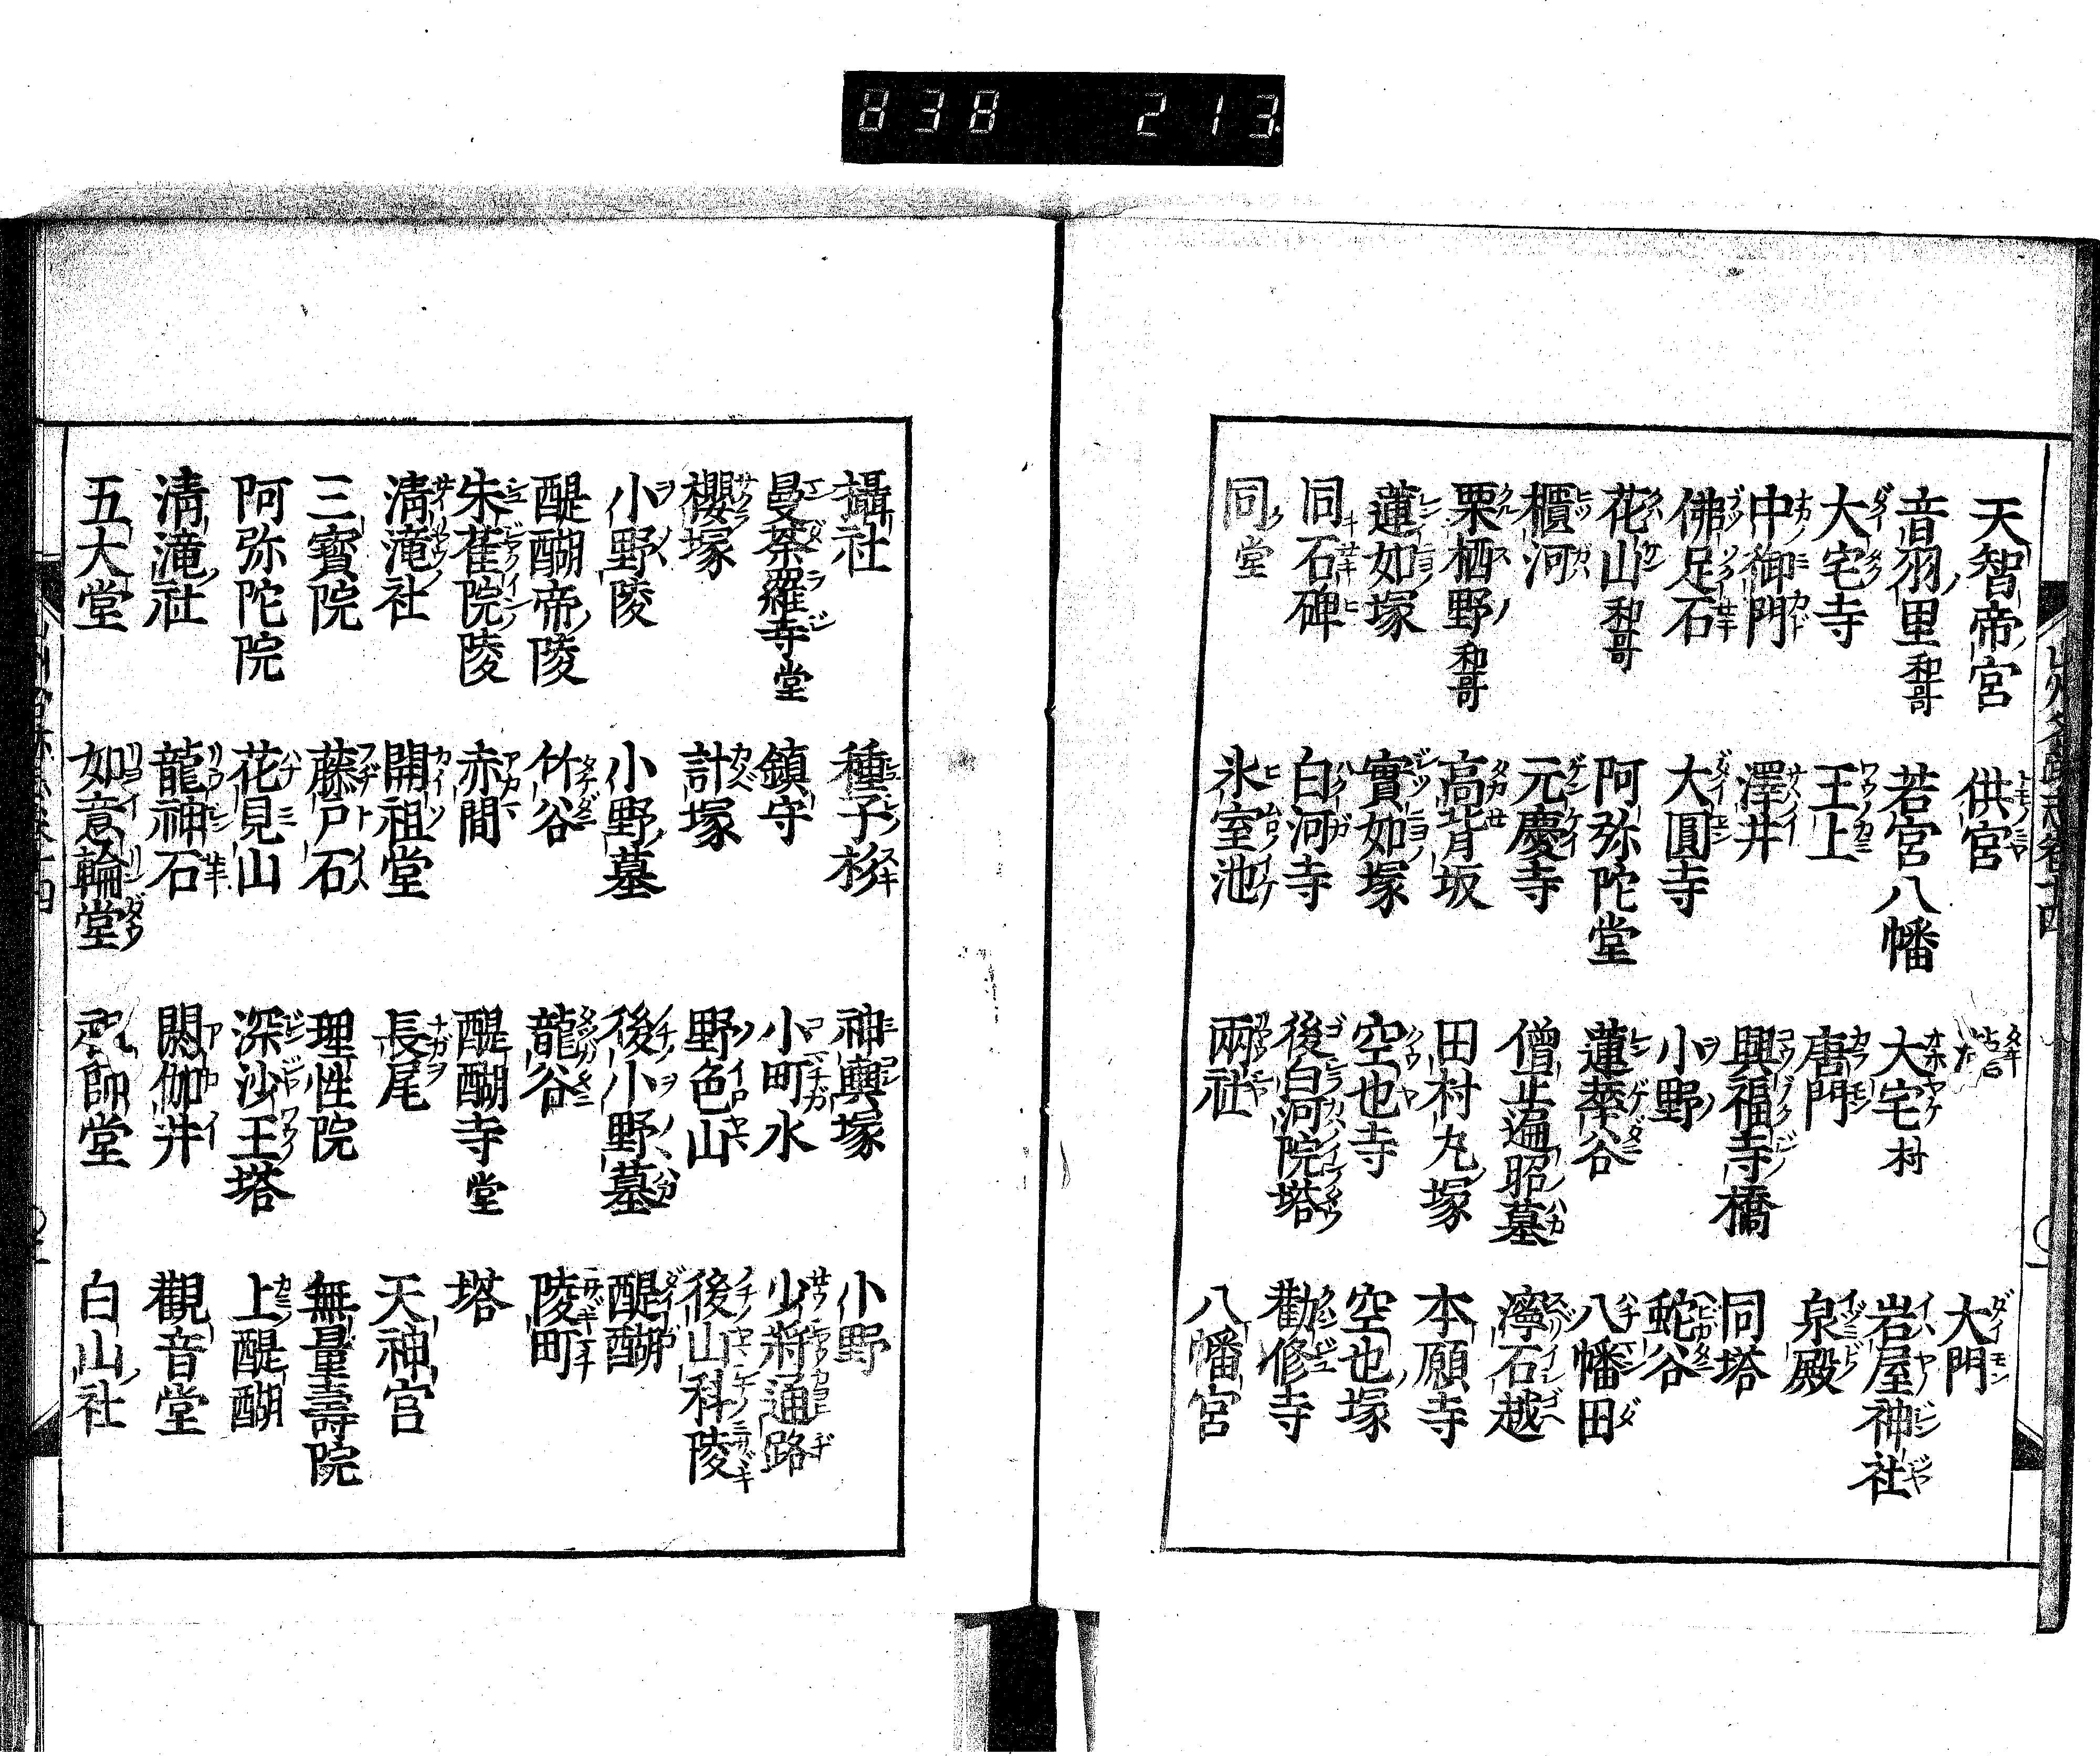 838 213
天智帝宮 供官 大門
音羽里和哥 若宮八幡 大宅村 岩屋神社
大宅寺 王上 唐門 泉殿
中御門 澤井 興福寺橋 同塔
佛足石 大圓寺 小野 蛇谷
花山和哥 阿弥陀堂 蓮華谷 八幡田
櫃河 元慶寺 僧正遍昭墓 濘石越
栗栖野和哥 高背坂 田村丸塚 本願寺
蓮如塚 實如塚 空也寺 空也塚
同石碑 白河寺 後白河院塔 勸修寺
同堂 氷室池 兩社 八幡宮
攝社 種子杉 神輿塚 小野
曼荼羅寺堂 鎮守 小町水 少将通路
櫻塚 計塚 野色山 後山科陵
小野陵 小野墓 後小野墓 醍醐
醍醐帝陵 竹谷 龍谷 陵町
朱雀院陵 赤間 醍醐寺堂 塔
清滝社 開祖堂 長尾 天神宮
三寳院 藤戸石 理性院 無量壽院
阿弥陀院 花見山 深沙王塔 上醍醐
清滝社 龍神石 閼伽井 觀音堂
五大堂 如意輪堂 師堂 白山社